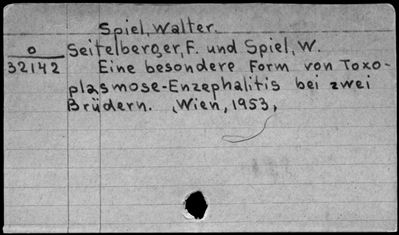 Spiel, Walter.
o Seitelberger, F. und Spiel, W.
32142 Eine besondere Form von Toxo-
plasmose-Enzephalitis bei zwei
Brüdern. (Wien, 1953)